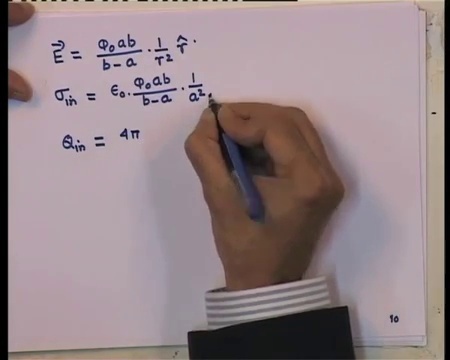 E⃗ = φ₀ab/(b−a) · 1/r² r̂ ·
σ_in = ϵ₀ · φ₀ab/(b−a) · 1/a² ·
Q_in = 4π
10